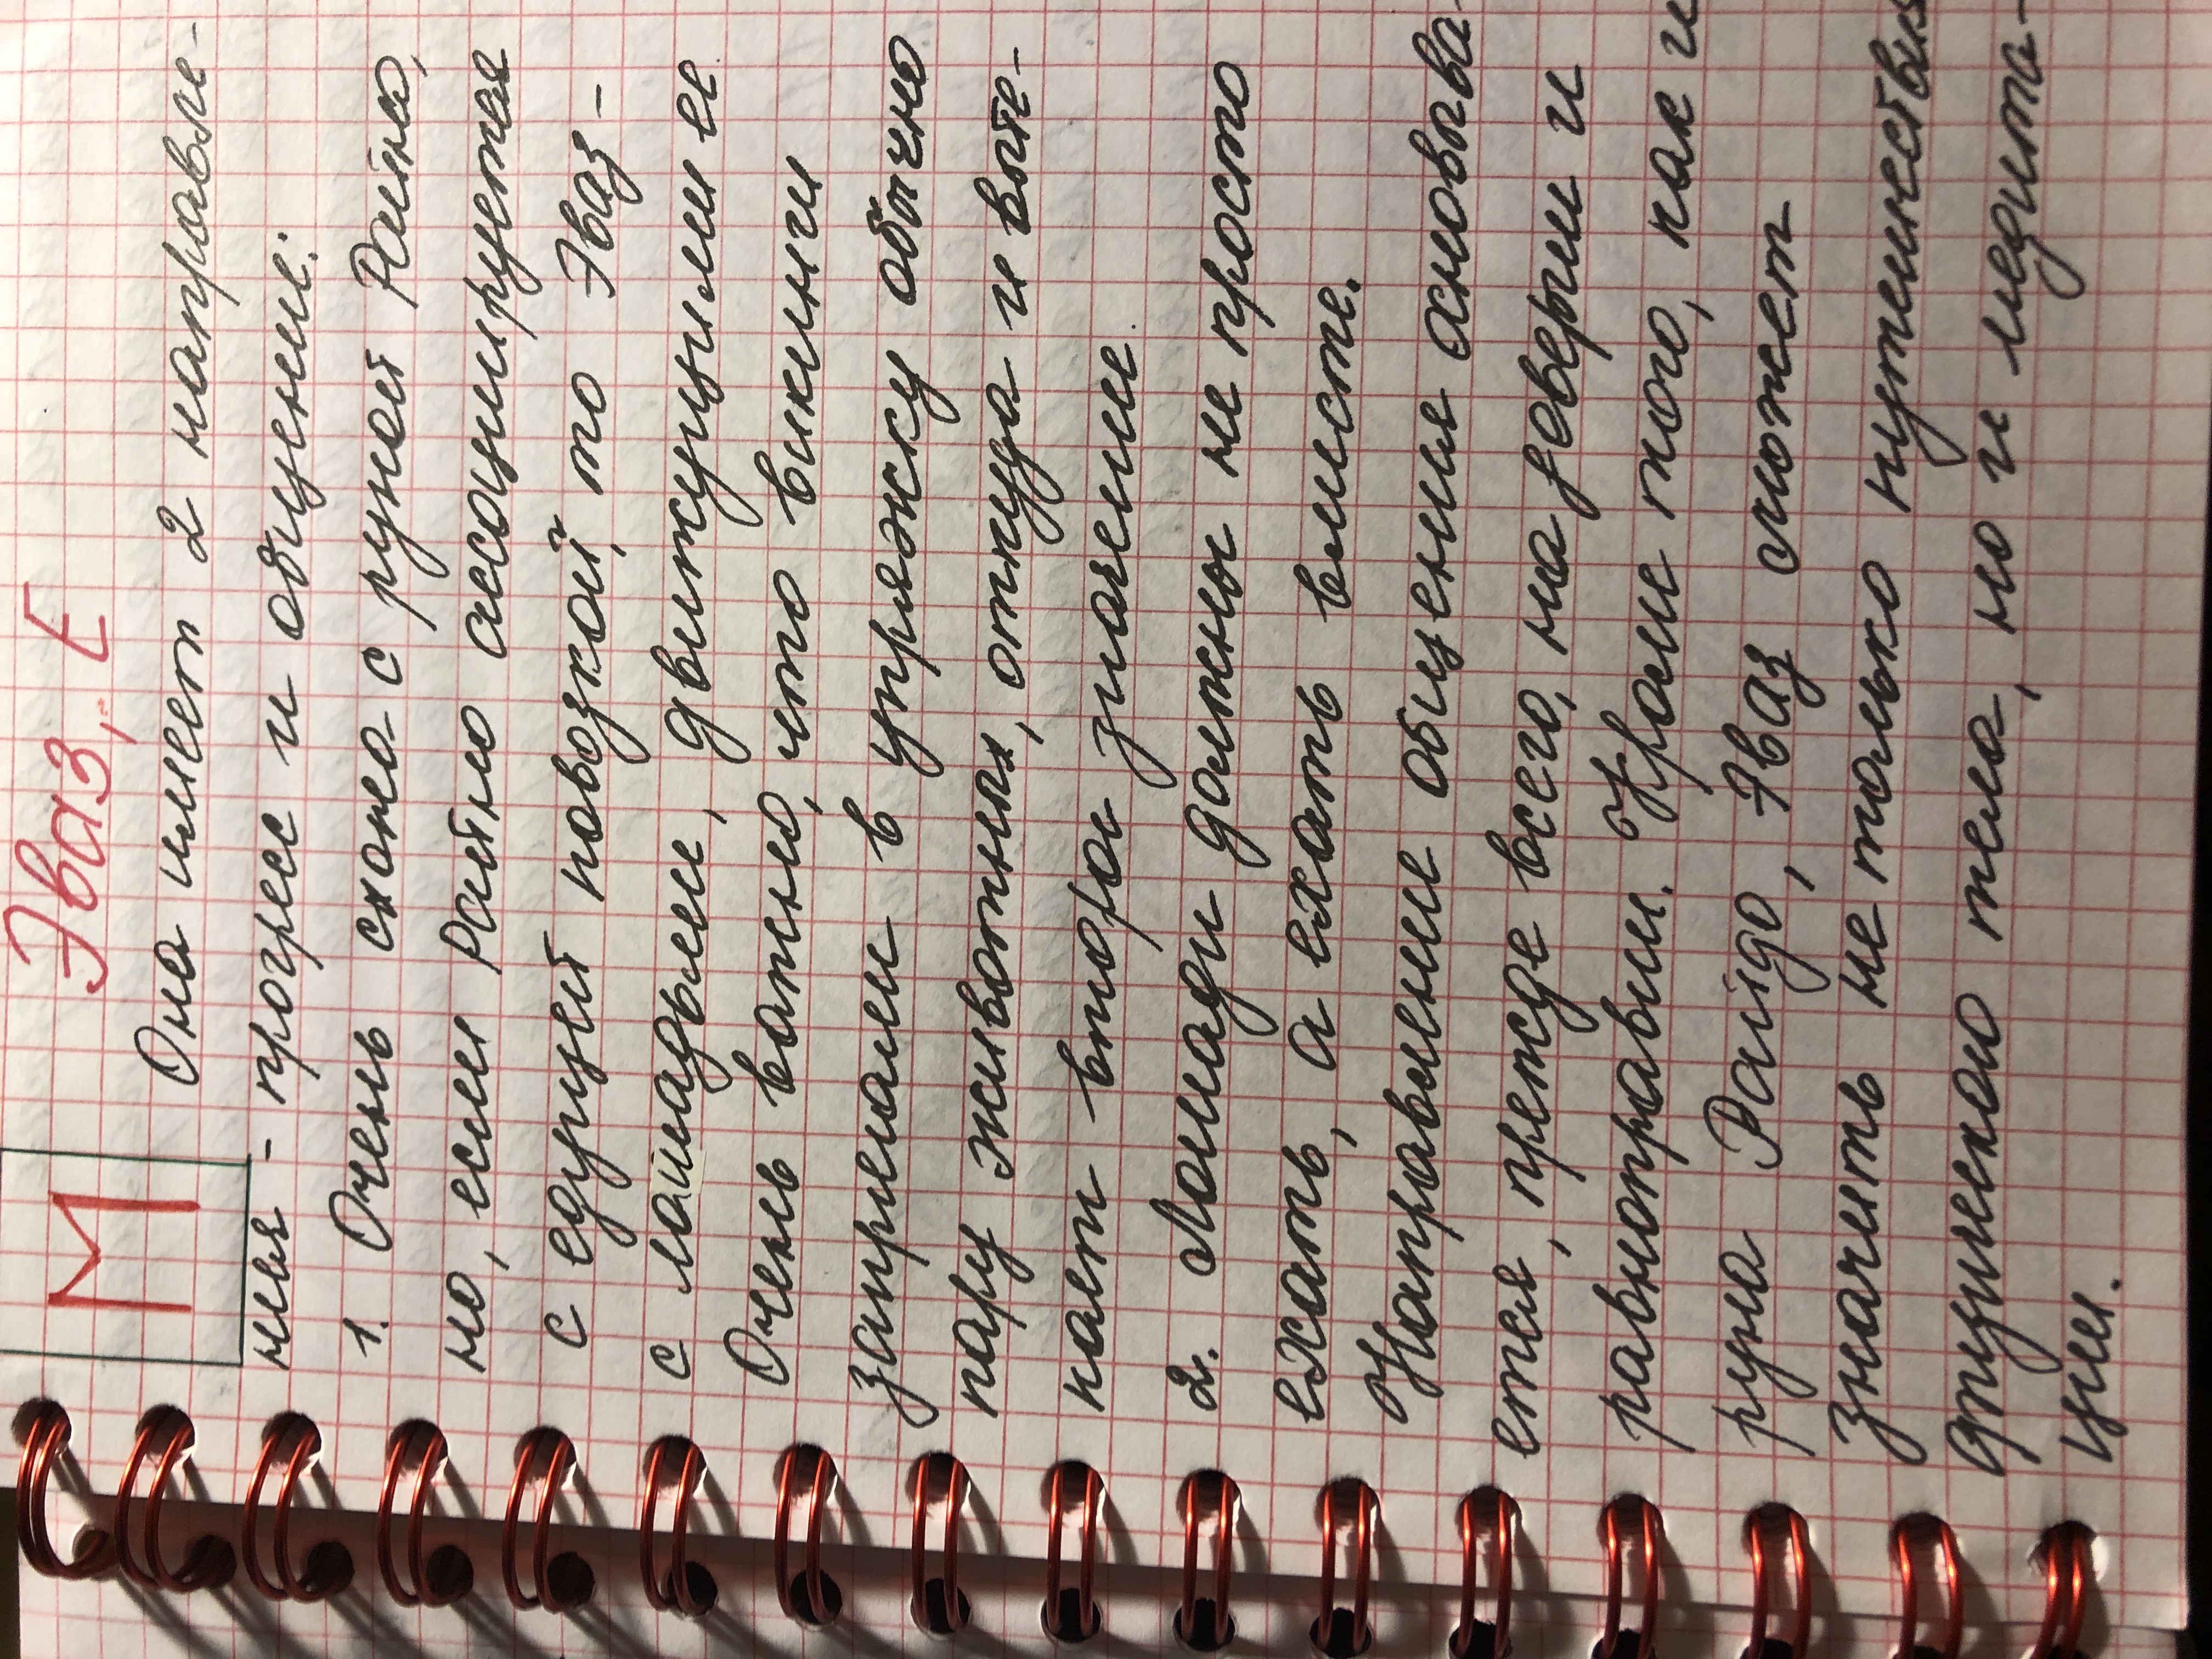 М Эваз, Е
Она имеет 2 направле-
ния - прогресс и общение:
1. Очень схожа с руной Райно,
но, если Райно ассоциируется
с едущей повозкой, то Эваз -
с лошадьми, движущими ее
Очень важно, что викинги
запрягали в упряжку обычно
пару животных, откуда и выте-
кает второе значение.
2. Лошади должны не просто
ехать, а ехать вместе.
Направление общения основыва-
ется, прежде всего, на доверии и
равноправии. Кроме того, как и
руна Райдо, Эваз может
значить не только путешествия
физического тела, но и медита-
ции.